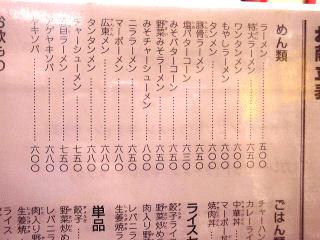 めん類
ラーメン……五〇〇
特大ラーメン……六〇〇
ワンタンメン……六〇〇
もやしラーメン……六〇〇
タンメン……六〇〇
豚骨ラーメン……六〇〇
塩バターコーン……六三〇
みそバターコーン
野菜みそラーメン
みそチャーシューメン……八〇〇
ニララーメン……六八〇
マーボーメン……六八〇
広東メン……六八〇
タンタンメン……六八〇
チャーシューメン……七五〇
五目ラーメン……七五〇
アゲヤキソバ……六八〇
ヤキソバ……六〇〇
お飲もの
ごはん
チャーハン
カレーラ
中華丼
マーボー
焼肉丼
ライス
餃子ライ
野菜炒め
肉入り野
レバニラ
生姜焼
単品
餃子
野菜炒め
レバニラ
肉入り野
生姜焼
ライス